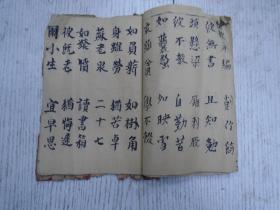 彼無書 且知勉
頭懸梁 錐刺股
彼不教 自勤苦
如囊螢 如映雪
家雖貧 學不輟
如負薪 如掛角
身雖勞 猶苦卓
蘇老泉 二十七
始發憤 讀書籍
彼既老 猶悔遲
爾小生 宜早思